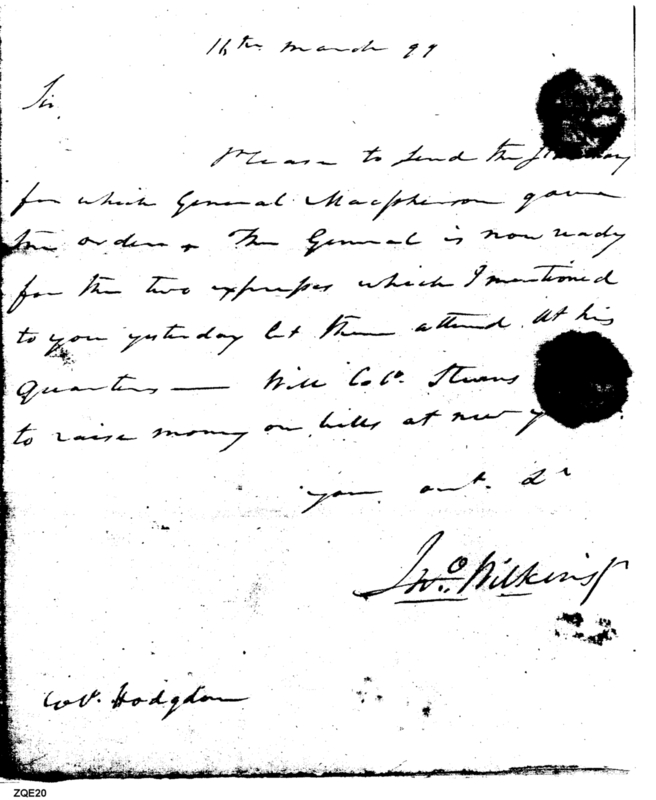 16th March 99
Sir,
Please to send the
for which General Macpherson gave
the order & The General is now ready
for the two expresses which I mentioned
to you yesterday let them attend At his
quarters — Will Colo. Stevens
to raise money on bills at new
your
Jno. Wilkins Jr
Colo. Hodgdon
ZQE20